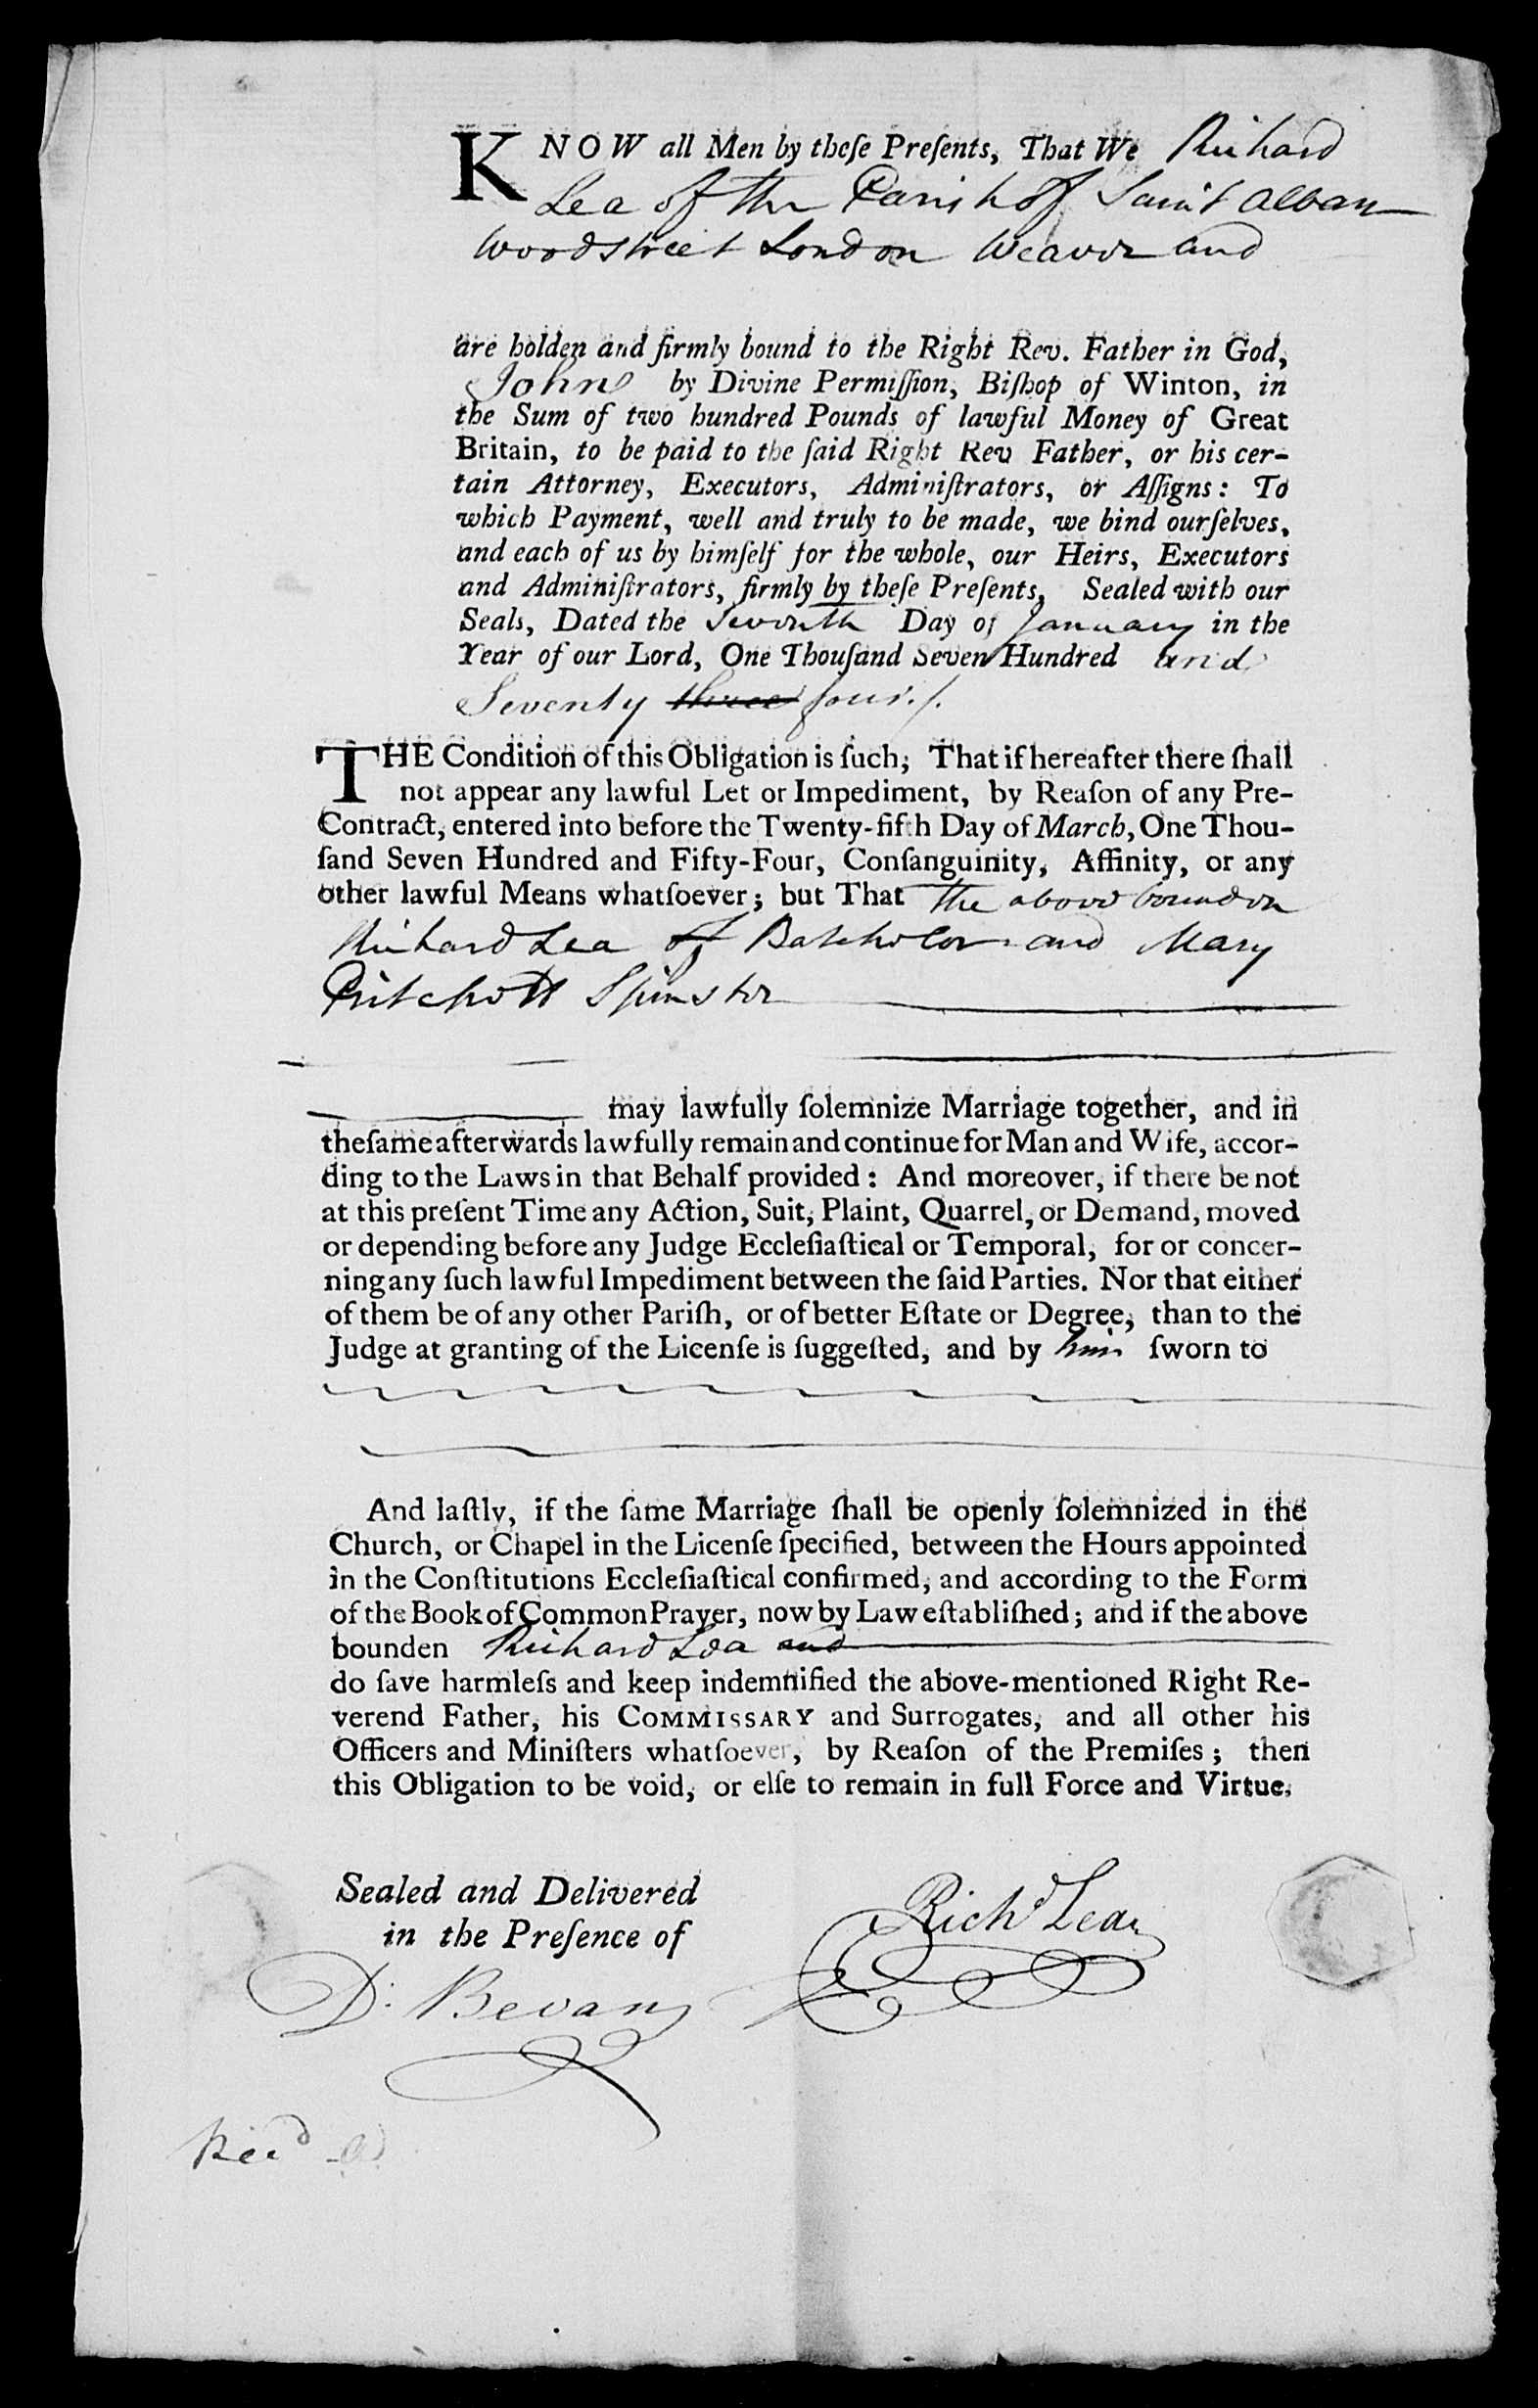 KNOW all Men by theſe Preſents, That We Richard
Lea of the Parish of Saint Alban
Woodstreet London Weaver and
are holden and firmly bound to the Right Rev. Father in God,
John by Divine Permiſſion, Biſhop of Winton, in
the Sum of two hundred Pounds of lawful Money of Great
Britain, to be paid to the ſaid Right Rev Father, or his cer-
tain Attorney, Executors, Adminiſtrators, or Aſſigns: To
which Payment, well and truly to be made, we bind ourſelves,
and each of us by himſelf for the whole, our Heirs, Executors
and Adminiſtrators, firmly by theſe Preſents, Sealed with our
Seals, Dated the Seventh Day of January in the
Year of our Lord, One Thouſand Seven Hundred and
Seventy three four./.
THE Condition of this Obligation is ſuch; That if hereafter there ſhall
not appear any lawful Let or Impediment, by Reaſon of any Pre-
Contract, entered into before the Twenty-fifth Day of March, One Thou-
ſand Seven Hundred and Fifty-Four, Conſanguinity, Affinity, or any
other lawful Means whatſoever; but That the above bounden
Richard Lea of Batchelor and Mary
Pritchett Spinster
may lawfully ſolemnize Marriage together, and in
the ſame afterwards lawfully remain and continue for Man and Wife, accor-
ding to the Laws in that Behalf provided: And moreover, if there be not
at this preſent Time any Action, Suit, Plaint, Quarrel, or Demand, moved
or depending before any Judge Eccleſiaſtical or Temporal, for or concer-
ning any ſuch lawful Impediment between the ſaid Parties. Nor that either
of them be of any other Pariſh, or of better Eſtate or Degree, than to the
Judge at granting of the Licenſe is ſuggeſted, and by him ſworn to
And laſtly, if the ſame Marriage ſhall be openly ſolemnized in the
Church, or Chapel in the Licenſe ſpecified, between the Hours appointed
in the Conſtitutions Eccleſiaſtical confirmed, and according to the Form
of the Book of Common Prayer, now by Law eſtabliſhed; and if the above
bounden Richard Lea and
do ſave harmleſs and keep indemnified the above-mentioned Right Re-
verend Father, his COMMISSARY and Surrogates, and all other his
Officers and Miniſters whatſoever, by Reaſon of the Premiſes; then
this Obligation to be void, or elſe to remain in full Force and Virtue.
Sealed and Delivered
in the Preſence of
Richd Lea
D. Bevan
Recd